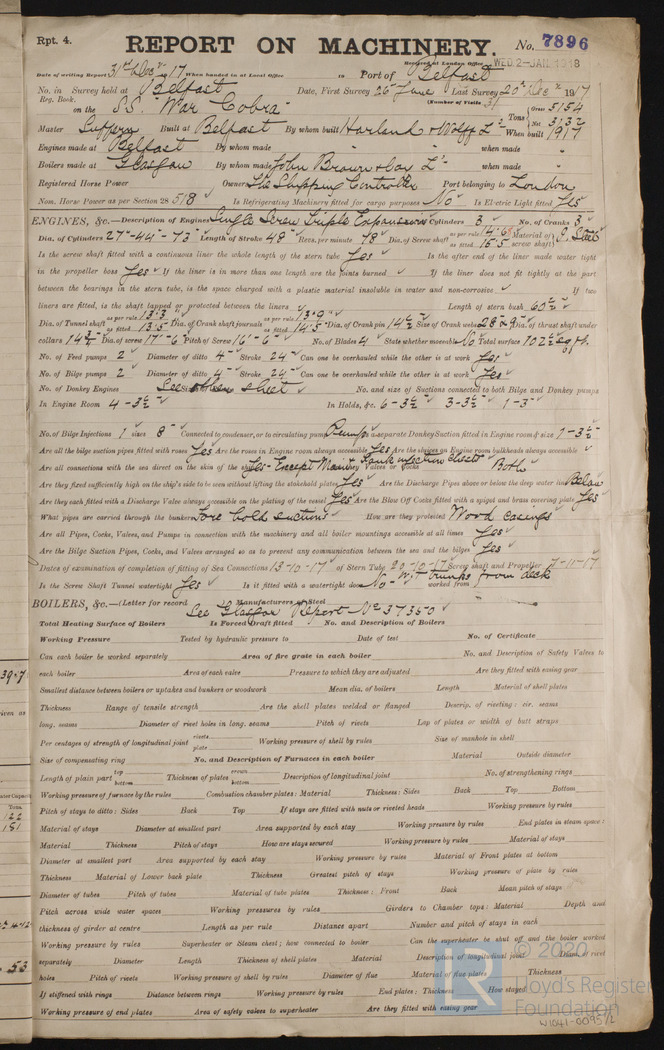 Rpt. 4.
REPORT ON MACHINERY. No. 7896
Received at London Office WED. 2-JAN. 1918
Date of writing Report 31st Decr 1917 When handed in at Local Office 19 Port of Belfast
No. in Survey held at Belfast Date, First Survey 26th June Last Survey 20th Decr 1917
Reg. Book. (Number of Visits 31
on the S.S. "War Cobra" Tons Gross 5154 Net 3132
Master Suffern Built at Belfast By whom built Harland & Wolff Ld When built 1917
Engines made at Belfast By whom made " when made "
Boilers made at Glasgow By whom made John Brown & Co Ld when made "
Registered Horse Power Owners The Shipping Controller Port belonging to London
Nom. Horse Power as per Section 28 518 Is Refrigerating Machinery fitted for cargo purposes No Is Electric Light fitted Yes
ENGINES, &c.—Description of Engines Single Screw Triple Expansion No. of Cylinders 3 No. of Cranks 3
Dia. of Cylinders 27"-44"-73" Length of Stroke 48" Revs. per minute 78 Dia. of Screw shaft as per rule 14.68 as fitted 15.5 Material of screw shaft I. Steel
Is the screw shaft fitted with a continuous liner the whole length of the stern tube Yes Is the after end of the liner made water tight
in the propeller boss Yes If the liner is in more than one length are the joints burned If the liner does not fit tightly at the part
between the bearings in the stern tube, is the space charged with a plastic material insoluble in water and non-corrosive If two
liners are fitted, is the shaft lapped or protected between the liners Length of stern bush 60½"
Dia. of Tunnel shaft as per rule 13.3" as fitted 13.5" Dia. of Crank shaft journals as per rule 13.9" as fitted 14.5" Dia. of Crank pin 14½" Size of Crank webs 28×9 Dia. of thrust shaft under
collars 14¾" Dia. of screw 17'-6" Pitch of Screw 16'-6" No. of Blades 4 State whether moveable No Total surface 102½ sq ft.
No. of Feed pumps 2 Diameter of ditto 4" Stroke 24" Can one be overhauled while the other is at work Yes
No. of Bilge pumps 2 Diameter of ditto 4" Stroke 24" Can one be overhauled while the other is at work Yes
No. of Donkey Engines See other sheet No. and size of Suctions connected to both Bilge and Donkey pumps
In Engine Room 4-3½" In Holds, &c. 6-3½" 3-3½" 1-3"
No. of Bilge Injections 1 sizes 8" Connected to condenser, or to circulating pump Pump Is a separate Donkey Suction fitted in Engine room & size 1-3½"
Are all the bilge suction pipes fitted with roses Yes Are the roses in Engine room always accessible Yes Are the sluices on Engine room bulkheads always accessible
Are all connections with the sea direct on the skin of the ship Yes-Except Main & Tank injection closets Are they Valves or Cocks Both
Are they fixed sufficiently high on the ship's side to be seen without lifting the stokehold plates Yes Are the Discharge Pipes above or below the deep water line Below
Are they each fitted with a Discharge Valve always accessible on the plating of the vessel Yes Are the Blow Off Cocks fitted with a spigot and brass covering plate Yes
What pipes are carried through the bunkers Fore hold suctions How are they protected Wood casings
Are all Pipes, Cocks, Valves, and Pumps in connection with the machinery and all boiler mountings accessible at all times Yes
Are the Bilge Suction Pipes, Cocks, and Valves arranged so as to prevent any communication between the sea and the bilges Yes
Dates of examination of completion of fitting of Sea Connections 13-10-17 of Stern Tube 20-10-17 Screw shaft and Propeller 7-11-17
Is the Screw Shaft Tunnel watertight Yes Is it fitted with a watertight door No - W.T trunk worked from from deck
BOILERS, &c.—(Letter for record Manufacturers of Steel
See Glasgow Report No 37350
Total Heating Surface of Boilers Is Forced Draft fitted No. and Description of Boilers
Working Pressure Tested by hydraulic pressure to Date of test No. of Certificate
Can each boiler be worked separately Area of fire grate in each boiler No. and Description of Safety Valves to
each boiler Area of each valve Pressure to which they are adjusted Are they fitted with easing gear
Smallest distance between boilers or uptakes and bunkers or woodwork Mean dia. of boilers Length Material of shell plates
Thickness Range of tensile strength Are the shell plates welded or flanged Descrip. of riveting: cir. seams
long. seams Diameter of rivet holes in long. seams Pitch of rivets Lap of plates or width of butt straps
Per centages of strength of longitudinal joint rivets plate Working pressure of shell by rules Size of manhole in shell
Size of compensating ring No. and Description of Furnaces in each boiler Material Outside diameter
Length of plain part top bottom Thickness of plates crown bottom Description of longitudinal joint No. of strengthening rings
Working pressure of furnace by the rules Combustion chamber plates: Material Thickness: Sides Back Top Bottom
Pitch of stays to ditto: Sides Back Top If stays are fitted with nuts or riveted heads Working pressure by rules
Material of stays Diameter at smallest part Area supported by each stay Working pressure by rules End plates in steam space:
Material Thickness Pitch of stays How are stays secured Working pressure by rules Material of stays
Diameter at smallest part Area supported by each stay Working pressure by rules Material of Front plates at bottom
Thickness Material of Lower back plate Thickness Greatest pitch of stays Working pressure of plate by rules
Diameter of tubes Pitch of tubes Material of tube plates Thickness: Front Back Mean pitch of stays
Pitch across wide water spaces Working pressures by rules Girders to Chamber tops: Material Depth and
thickness of girder at centre Length as per rule Distance apart Number and pitch of stays in each
Working pressure by rules Superheater or Steam chest; how connected to boiler Can the superheater be shut off and the boiler worked
separately Diameter Length Thickness of shell plates Material Description of longitudinal joint Diam. of rivet
holes Pitch of rivets Working pressure of shell by rules Diameter of flue Material of flue plates Thickness
If stiffened with rings Distance between rings Working pressure by rules End plates: Thickness How stayed
Working pressure of end plates Area of safety valves to superheater Are they fitted with easing gear
© 2020
Lloyd's Register
Foundation
W1041-0095 1/2